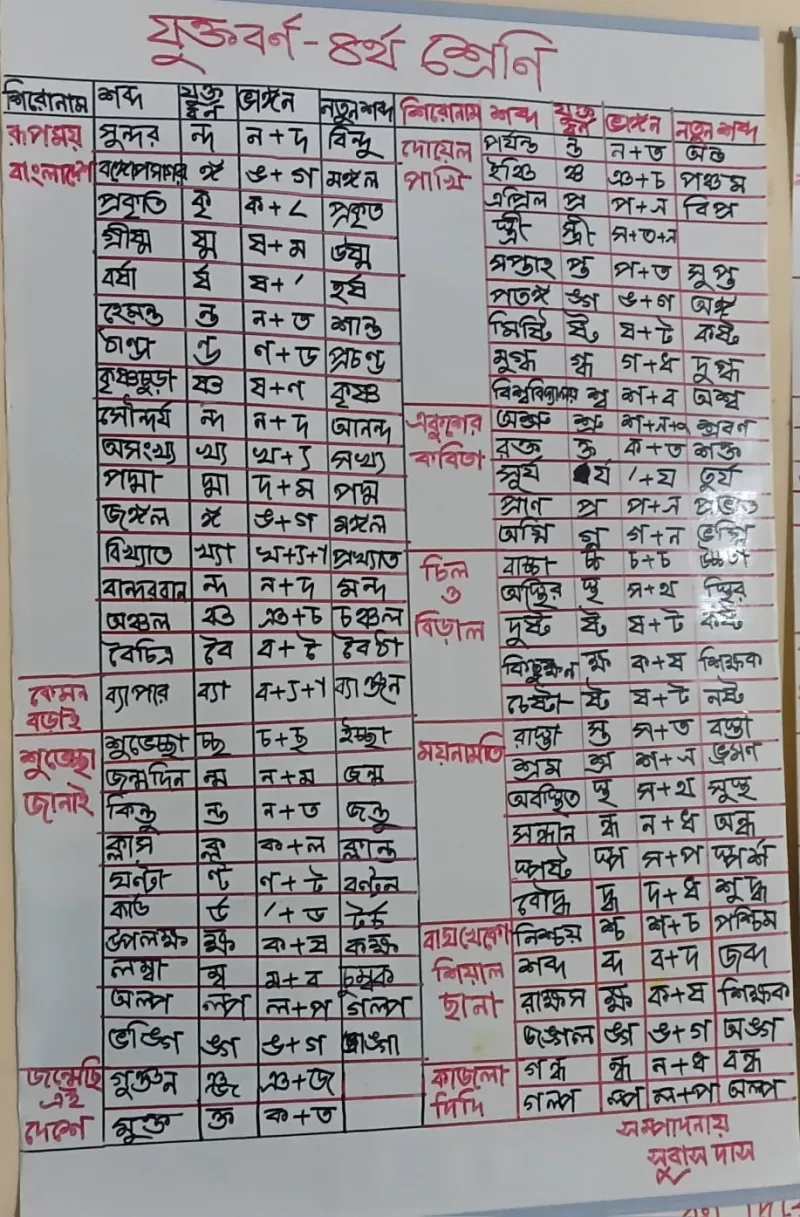 যুক্তবর্ন-৪র্থ শ্রেনি
শিরোনাম শব্দ যুক্ত বর্ন ভাঙ্গন নতুন শব্দ
রূপময় বাংলাদেশ
সুন্দর ন্দ ন+দ বিন্দু
বঙ্গোপসাগর ঙ্গ ঙ+গ মঙ্গল
প্রকৃতি কৃ ক+ৃ প্রকৃত
গ্রীষ্ম ষ্ম ষ+ম উষ্ম
বর্ষা র্ষ ষ+র্ হর্ষ
হেমন্ত ন্ত ন+ত শান্ত
ঠান্ডা ন্ড ণ+ড প্রচন্ড
কৃষ্ণচুড়া ষ্ণ ষ+ণ কৃষ্ণ
সৌন্দর্য ন্দ ন+দ আনন্দ
অসংখ্য খ্য খ+্য সখ্য
পদ্মা দ্মা দ+ম পদ্ম
জঙ্গল ঙ্গ ঙ+গ মঙ্গল
বিখ্যাত খ্যা খ+্য+া প্রখ্যাত
বান্দরবান ন্দ ন+দ মন্দ
অঞ্চল ঞ্চ ঞ+চ চঞ্চল
বৈচিত্র বৈ ব+ৈ বৈঠা
কেমন বড়াই
ব্যাপার ব্যা ব+্য+া ব্যাঞ্জন
শুভেচ্ছা জানাই
শুভেচ্ছা চ্ছ চ+ছ ইচ্ছা
জন্মদিন ন্ম ন+ম জন্ম
কিন্তু ন্তু ন+ত জন্তু
ক্লাস ক্ল ক+ল ক্লান্ত
ঘন্টা ন্ট ণ+ট বন্টন
কার্ড র্ড র্+ড টর্চ
উপলক্ষ ক্ষ ক+ষ কক্ষ
লম্বা ম্ব ম+ব চুম্বক
অল্প ল্প ল+প গল্প
ভঙ্গি ঙ্গ ঙ+গ
জন্মেছি এই দেশে
গুঞ্জন ঞ্জ ঞ+জ
মুক্ত ক্ত ক+ত
শিরোনাম শব্দ যুক্ত বর্ন ভাঙ্গন নতুন শব্দ
দোয়েল পাখি
পর্যন্ত ন্ত ন+ত অন্ত
ইঞ্চি ঞ্চ ঞ+চ পঞ্চম
এপ্রিল প্র প+্র বিপ্র
স্ত্রী স্ত্রী স+ত+্র
সপ্তাহ প্ত প+ত সুপ্ত
পতঙ্গ ঙ্গ ঙ+গ অঙ্গ
মিষ্টি ষ্ট ষ+ট কষ্ট
মুগ্ধ গ্ধ গ+ধ দুগ্ধ
বিশ্ববিদ্যালয় শ্ব শ+ব অশ্ব
একুশের কবিতা
অশ্রু শ্রু শ+্র+ু শ্রবন
রক্ত ক্ত ক+ত শক্ত
সূর্য র্য র্+য তূর্য
প্রাণ প্র প+্র প্রভাত
অগ্নি গ্ন গ+ন ভগ্নি
চিল ও বিড়াল
বাচ্চা চ্চ চ+চ উচ্চতা
অস্থির স্থ স+থ স্থির
দুষ্ট ষ্ট ষ+ট কষ্ট
কিছুক্ষন ক্ষ ক+ষ শিক্ষক
চেষ্টা ষ্ট ষ+ট নষ্ট
ময়নামতি
রাস্তা স্ত স+ত বস্তা
শ্রম শ্র শ+্র ভ্রমন
অবস্থিত স্থ স+থ সুস্থ
সন্ধান ন্ধ ন+ধ অন্ধ
স্পষ্ট স্প স+প স্পর্শ
বৌদ্ধ দ্ধ দ+ধ শুদ্ধ
বাঘখেকো শিয়াল ছানা
নিশ্চয় শ্চ শ+চ পশ্চিম
শব্দ ব্দ ব+দ জব্দ
রাক্ষস ক্ষ ক+ষ শিক্ষক
জঙ্গল ঙ্গ ঙ+গ অঙ্গ
কাজলা দিদি
গন্ধ ন্ধ ন+ধ বন্ধ
গল্প ল্প ল+প অল্প
সম্পাদনায়
সুবাস দাস